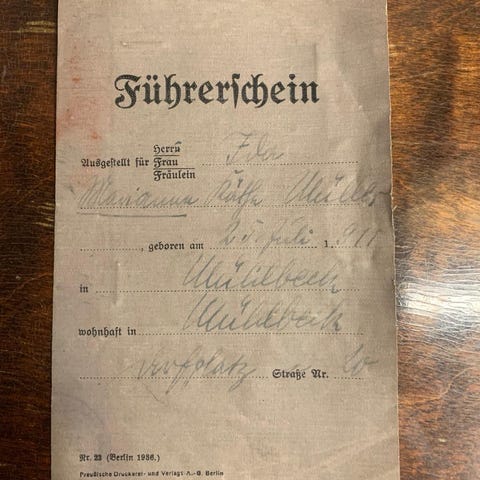 Führerschein
Herrn
Ausgestellt für Frau Ida
Fräulein
Marianne Käthe Müller
, geboren am 25. Juli 1911
in Mühlbeck
wohnhaft in Mühlbeck
Dorfplatz Straße Nr. 10
Nr. 23 (Berlin 1936.)
Preußische Druckerei- und Verlags-A.-G. Berlin